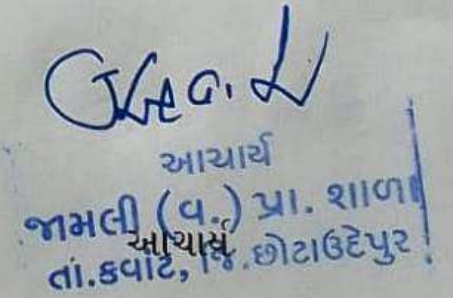 આચાર્ય
જામલી (વ.) પ્રા. શાળા
આચાર્ય
તાં.કવાંટ, જિ.છોટાઉદેપુર